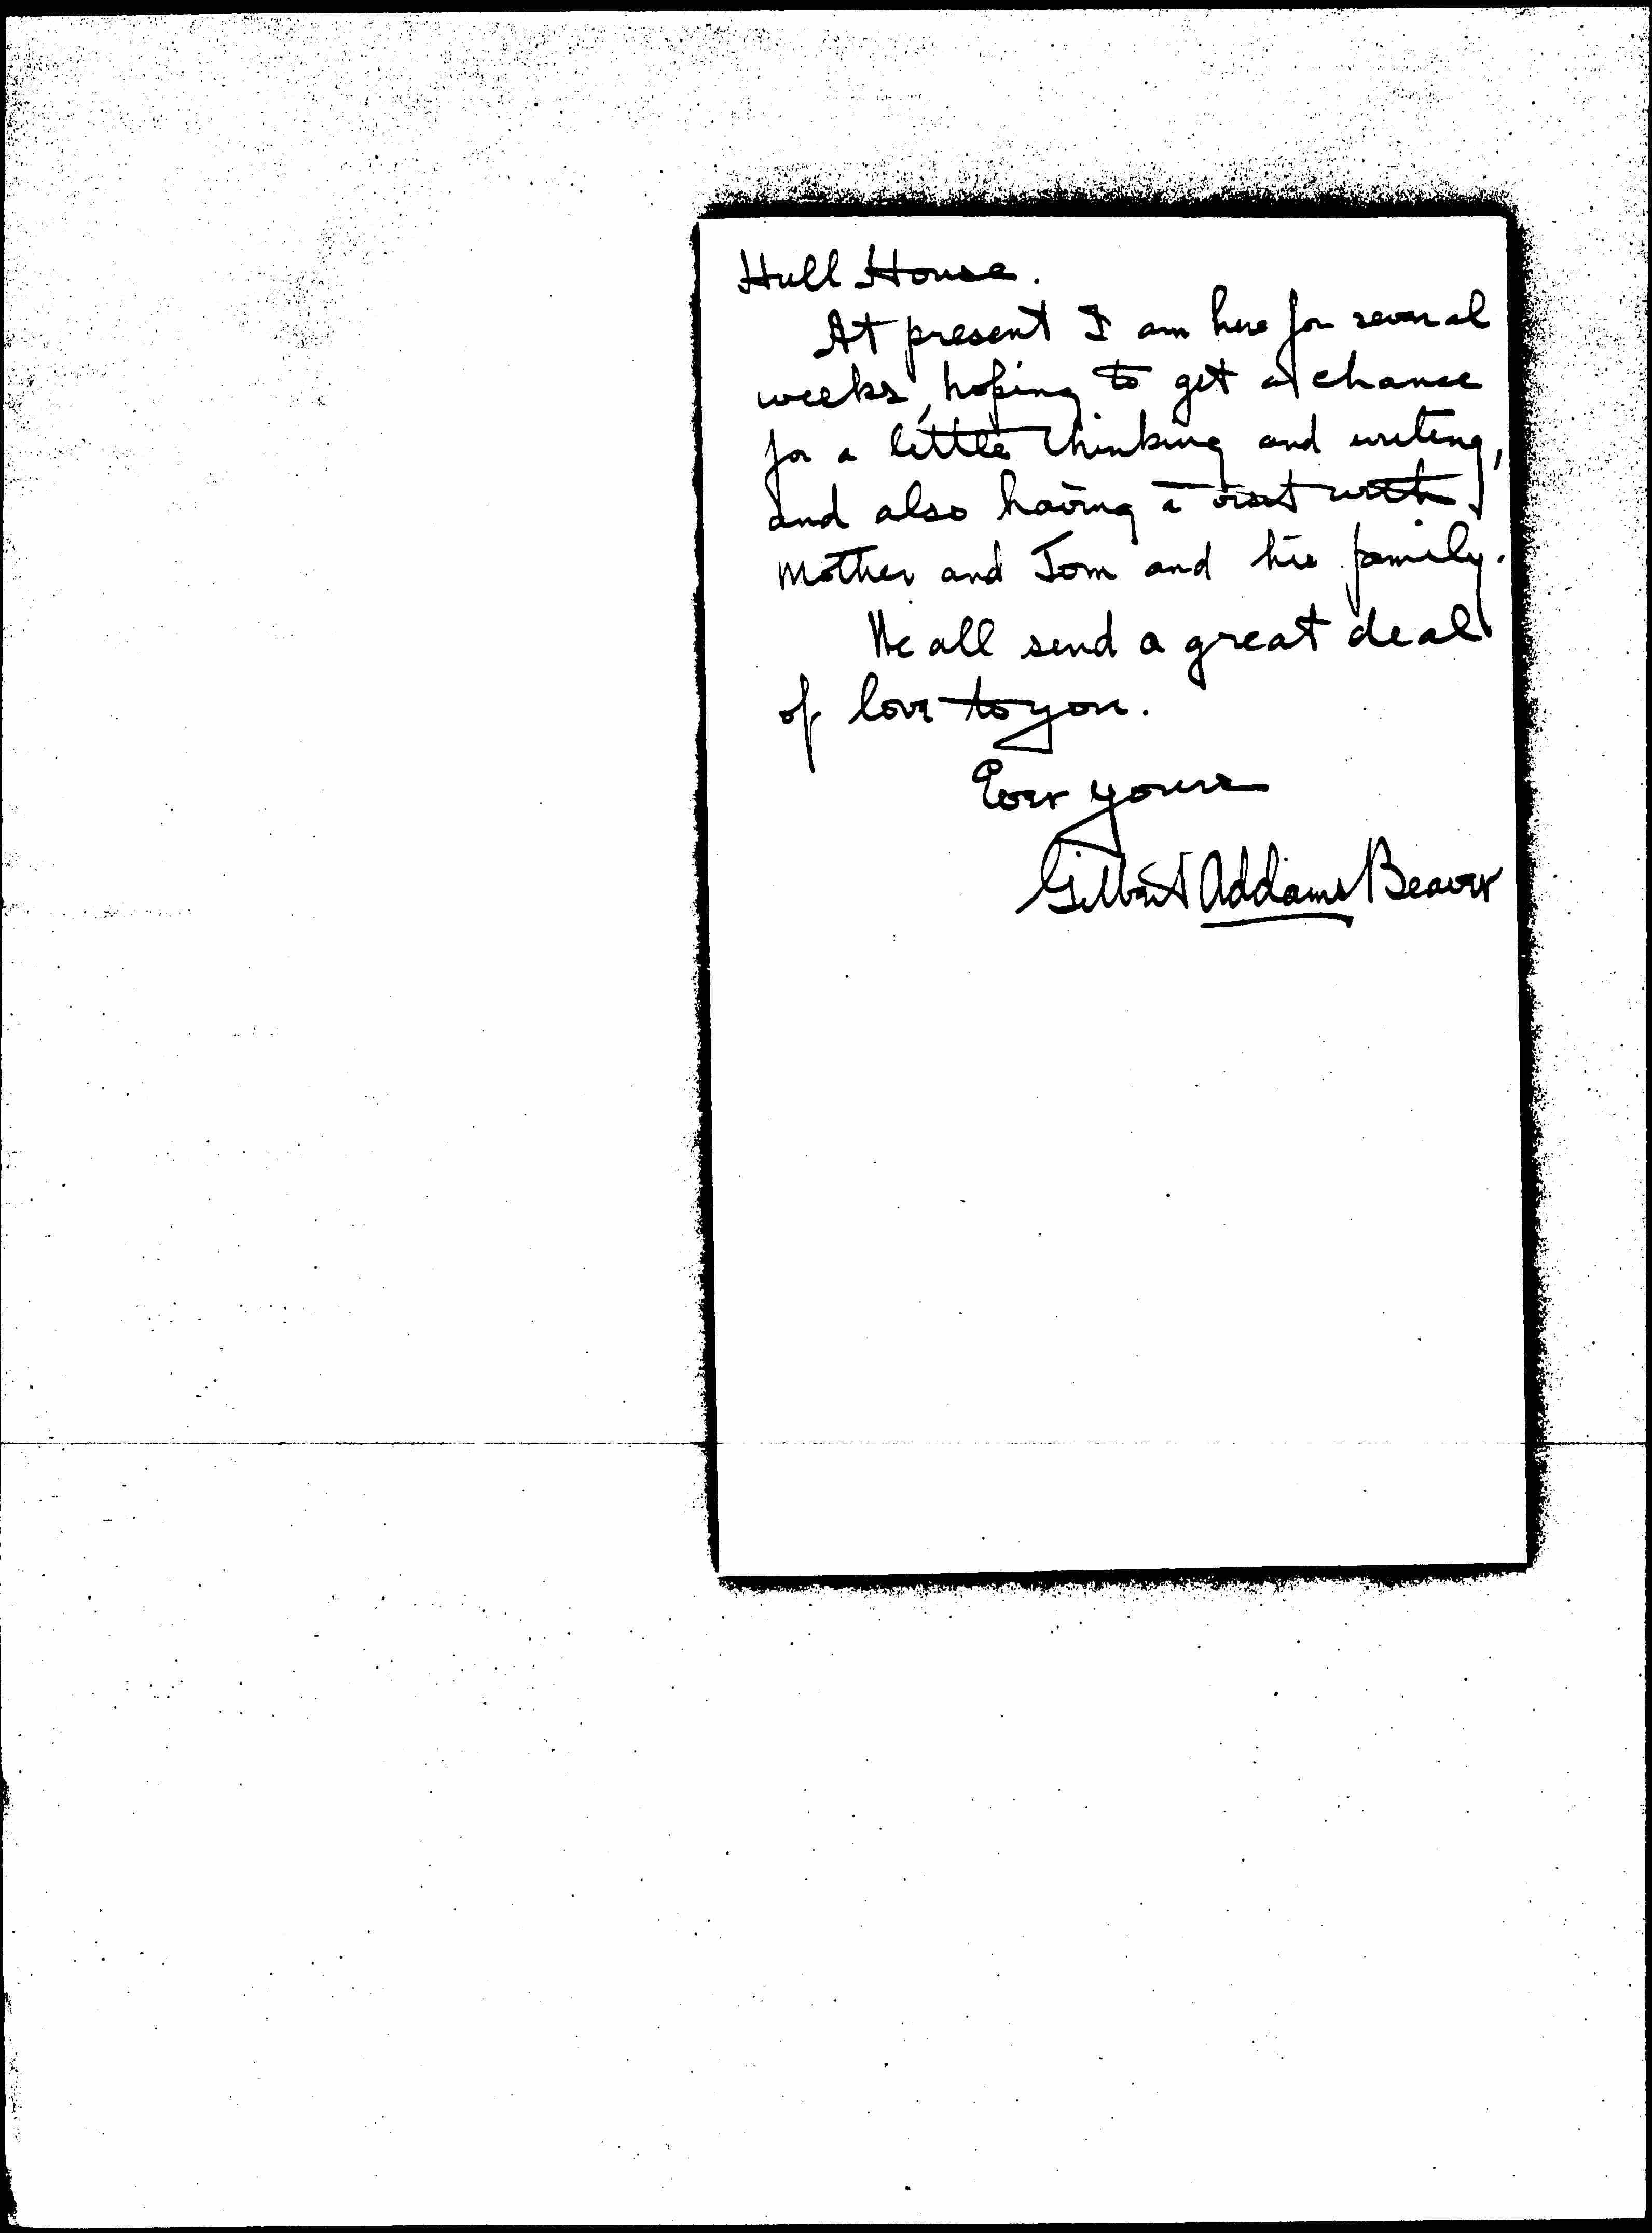 Hull House.
At present I am here for several
weeks, hoping to get a chance
for a little thinking and writing,
and also having a visit with
Mother and Tom and his family.
We all send a great deal
of love to you.
Ever yours
Gilbert Addams Beaver